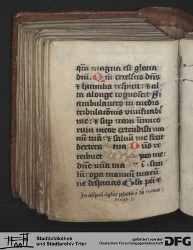 qm̄ magna est gloria
dn̄i Qm̄ excelsus dn̄s
et humilia respicit: et al
ta a longe cognoscit Si
ambulavero in medio
tribulacionis vivificabis
me: et sup iram inimico
rum meor extendisti ma
num tuā: et salvū me fec
dextera tua Dn̄s re
tribuet pro me
dn̄e mīa tua in sclm
opa manuū tuarū
ne despicias
Stadtbibliothek
und Stadtarchiv Trier
gefördert von der
Deutschen Forschungsgemeinschaft
DFG